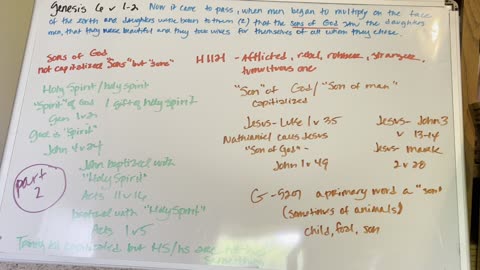 Genesis 6 v 1-2 Now it came to pass, when men began to multiply on the face
of the earth and daughters were born to them (2) that the sons of God saw the daughters
men, that they were beautiful and they took wives for themselves of all whom they chose.
Sons of God
not capitalized "Sons" but "sons"
H1121 - Afflicted, rebel,
tumultuous one
Holy Spirit/holy spirit
"Spirit" of God / gifts holy spirit
Gen 1 v 2
God is "Spirit"
John 4 v 24
John baptized with
"Holy Spirit"
Acts 11 v 16
baptized with "Holy Spirit"
Acts 1 v 5
but HS/hs are not the
same thing
part
2
"Son" of God/"Son of man"
capitialized
Jesus - Luke 1 v 35
Nathaniel calls Jesus
"Son of God" -
John 1 v 49
Jesus - John 3
v 13-14
Jesus - Mark
2 v 28
G-5207 a primary word a "son"
(sometimes of animals)
child, foal, son